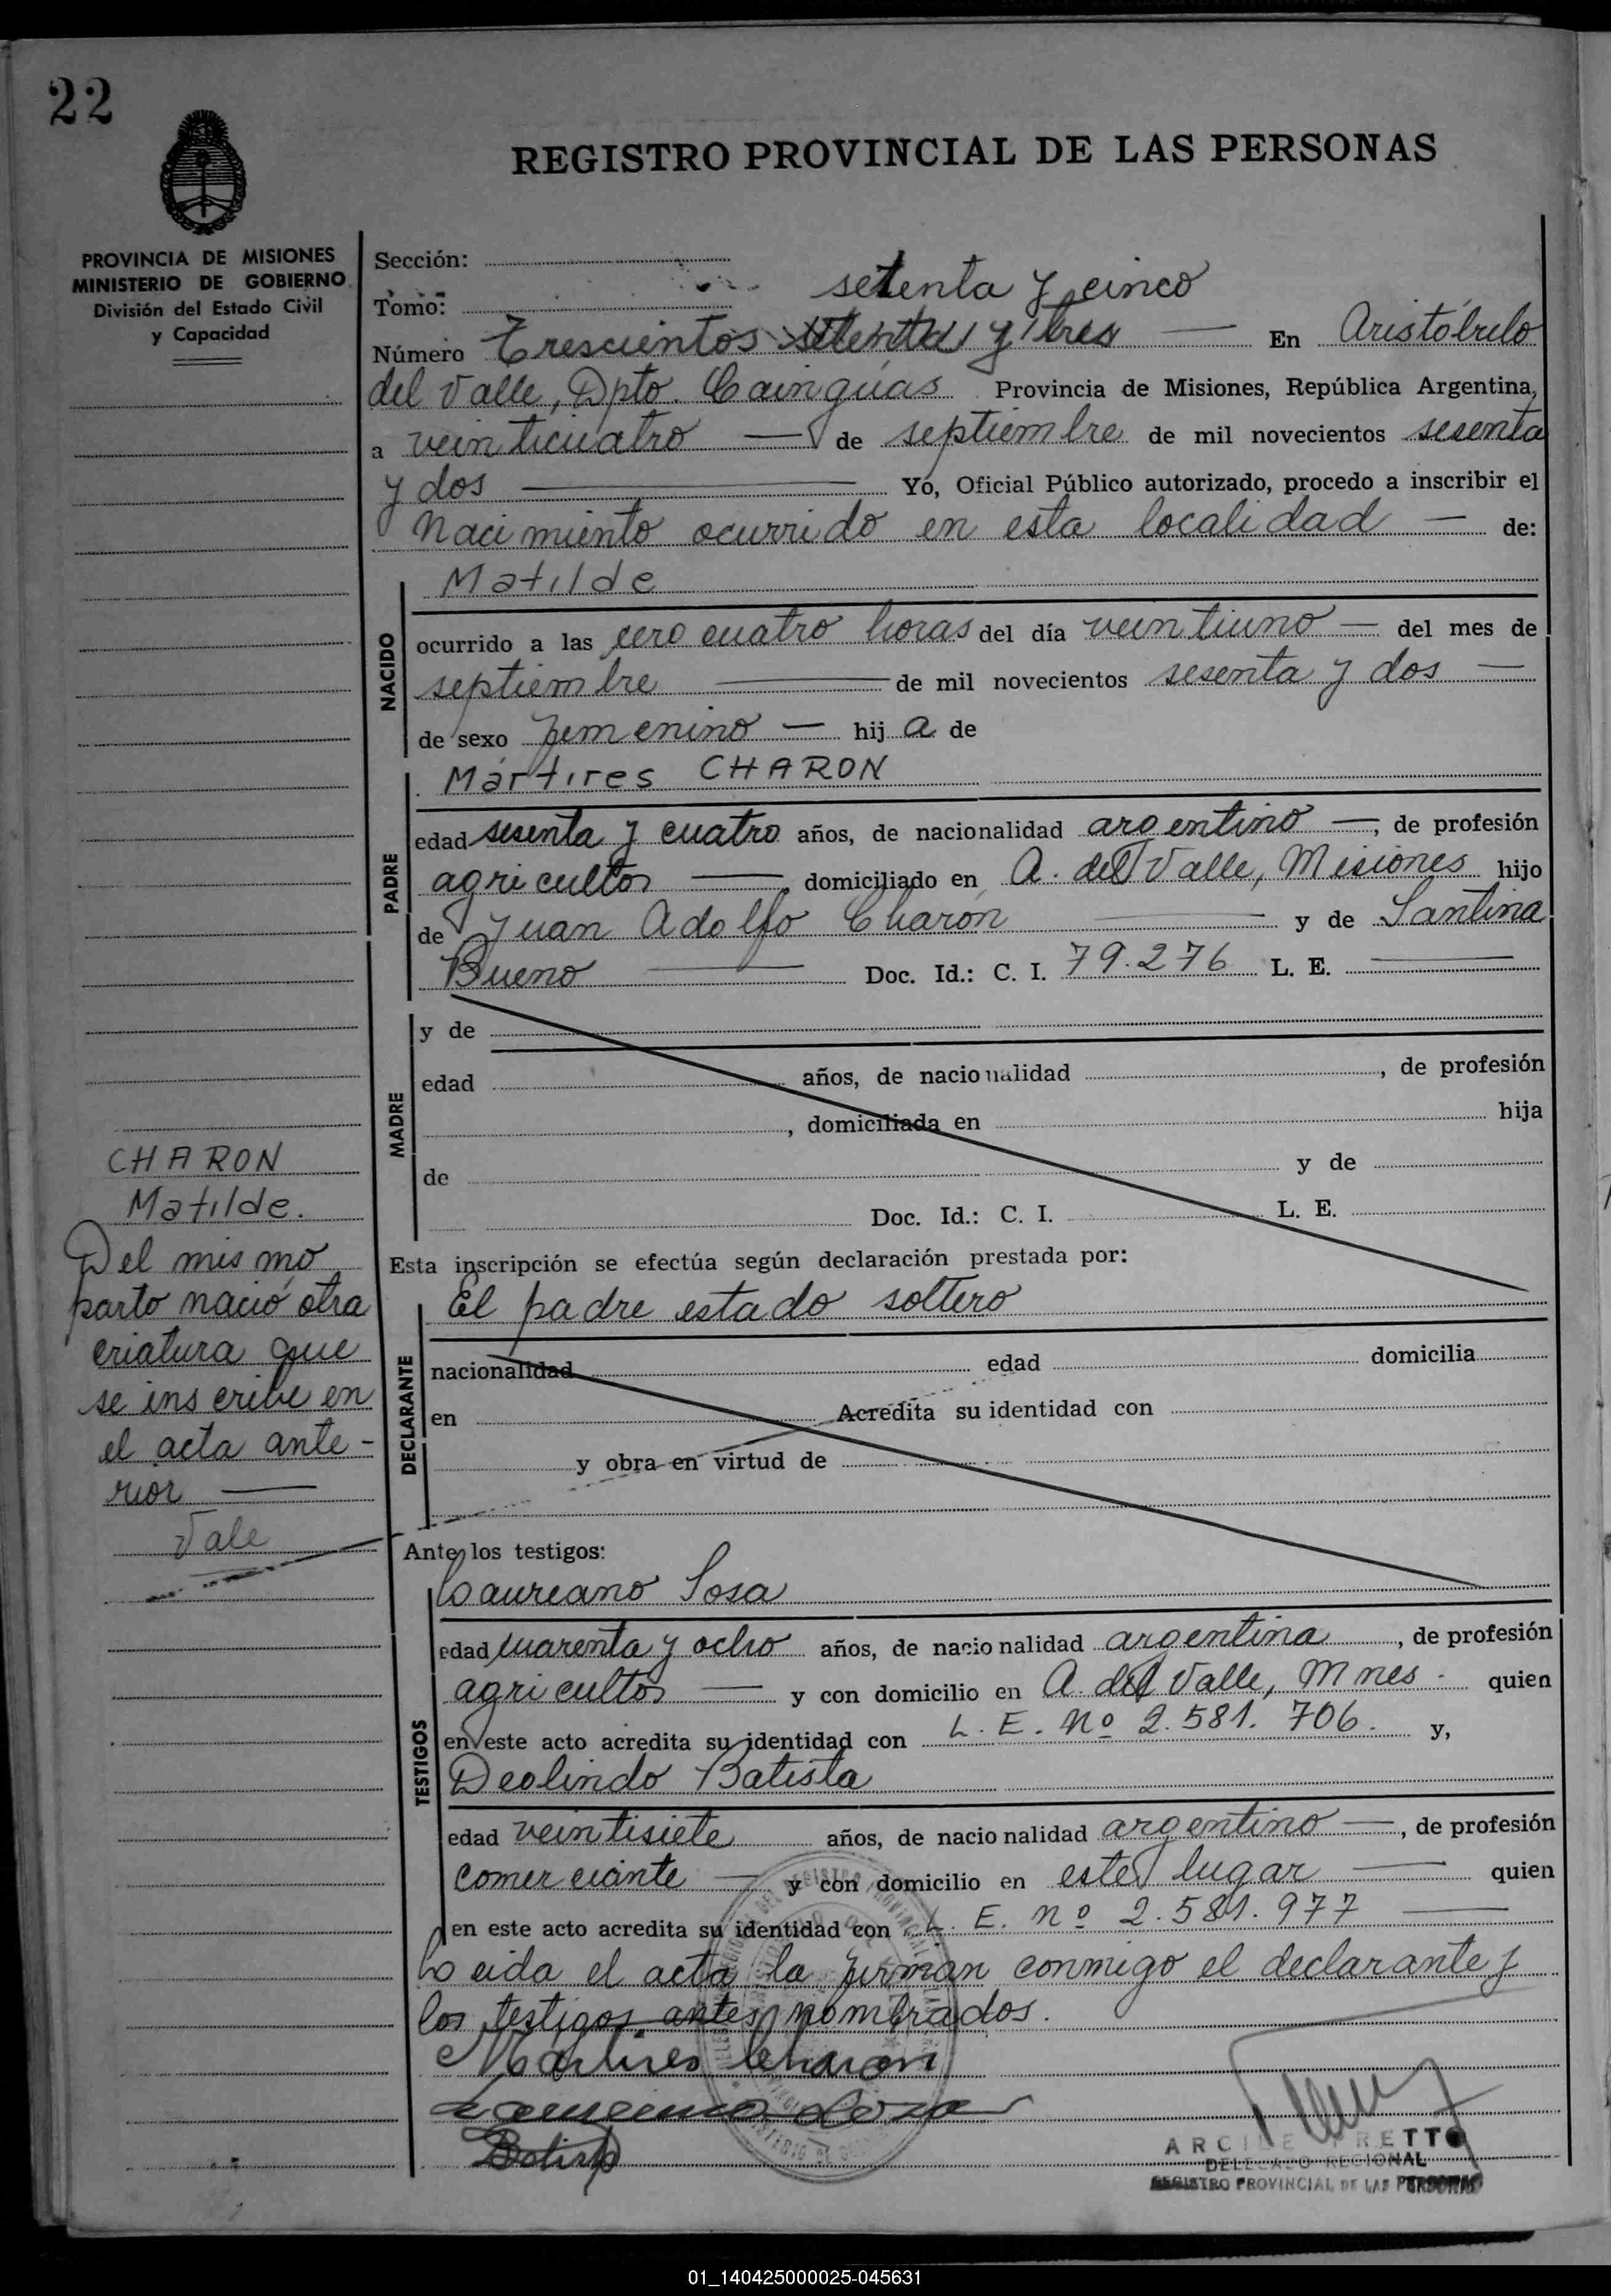 22
REGISTRO PROVINCIAL DE LAS PERSONAS
PROVINCIA DE MISIONES
MINISTERIO DE GOBIERNO
División del Estado Civil
y Capacidad
Sección:
setenta y cinco
Tomo:
Número Trescientos setenta y tres — En Aristóbulo
del Valle, Dpto. Cainguas Provincia de Misiones, República Argentina,
a veinticuatro — de septiembre de mil novecientos sesenta
y dos — Yó, Oficial Público autorizado, procedo a inscribir el
nacimiento ocurrido en esta localidad — de:
Matilde
NACIDO
ocurrido a las cero cuatro horas del día veintiuno — del mes de
septiembre — de mil novecientos sesenta y dos —
de sexo femenino — hij a de
Mártires CHARON
PADRE
edad sesenta y cuatro años, de nacionalidad argentino —, de profesión
agricultor —, domiciliado en A. del Valle, Misiones hijo
de Juan Adolfo Charón — y de Santina
Bueno — Doc. Id.: C. I. 79.276 L. E. —
MADRE
y de
edad años, de nacionalidad , de profesión
, domiciliada en hija
de y de
Doc. Id.: C. I. L. E.
CHARON
Matilde.
Del mismo
parto nació otra
criatura que
se inscribe en
el acta ante-
rior —
Vale
Esta inscripción se efectúa según declaración prestada por:
El padre estado soltero
DECLARANTE
nacionalidad edad domicilia
en Acredita su identidad con
y obra en virtud de
Ante los testigos:
Laureano Sosa
TESTIGOS
edad cuarenta y ocho años, de nacionalidad argentina, de profesión
agricultor — y con domicilio en A. del Valle, Mnes. quien
en este acto acredita su identidad con L. E. Nº 2.581.706. y,
Deolindo Batista
edad veintisiete años, de nacionalidad argentino —, de profesión
comerciante — y con domicilio en este lugar — quien
en este acto acredita su identidad con L. E. nº 2.581.977 —
Leida el acta la firman conmigo el declarante y
los testigos antes nombrados.
Martires Charon
Laureano Sosa
Batista
DELEGADO REGIONAL
REGISTRO PROVINCIAL DE LAS PERSONAS
01_140425000025-045631